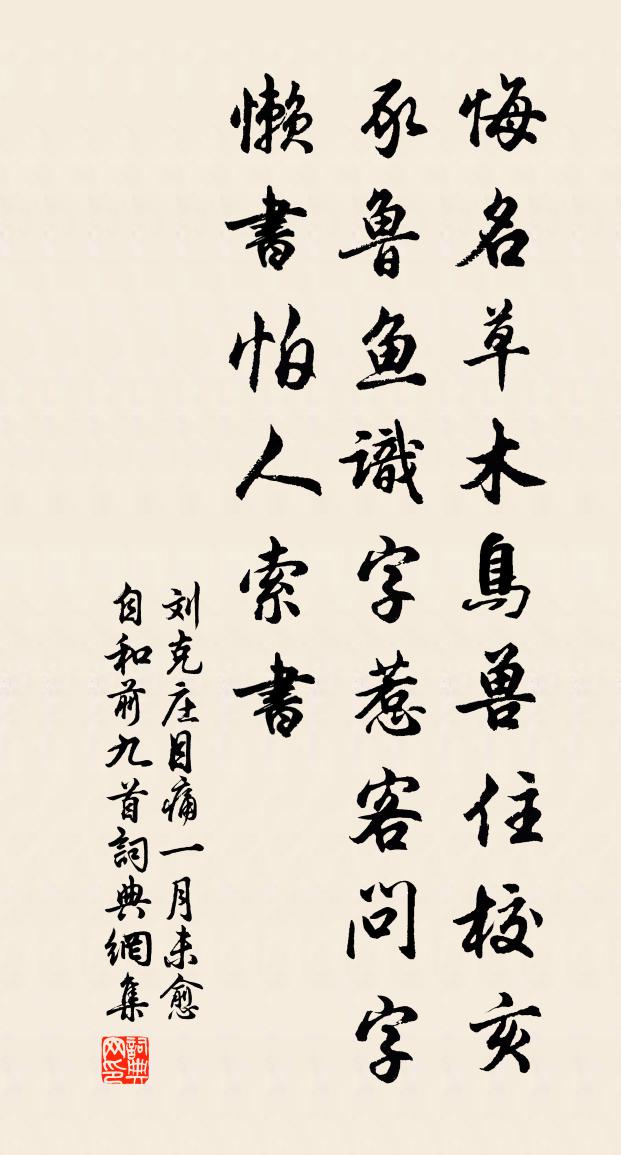 悔名草木鳥兽住校亥
豕魯鱼識字惹客問字
懒書怕人索書
刘克庄目痛一月未愈
自和前九首詞典網集
詞典网印